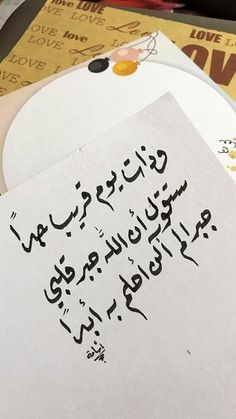 LOVE LOVE
love LOVE Love
LOVE
LOVE
LOVE
love
وذات يوم قريب جداً
ستقول أن الله جبر قلبي
جبراً لم أكن أحلم به أبداً